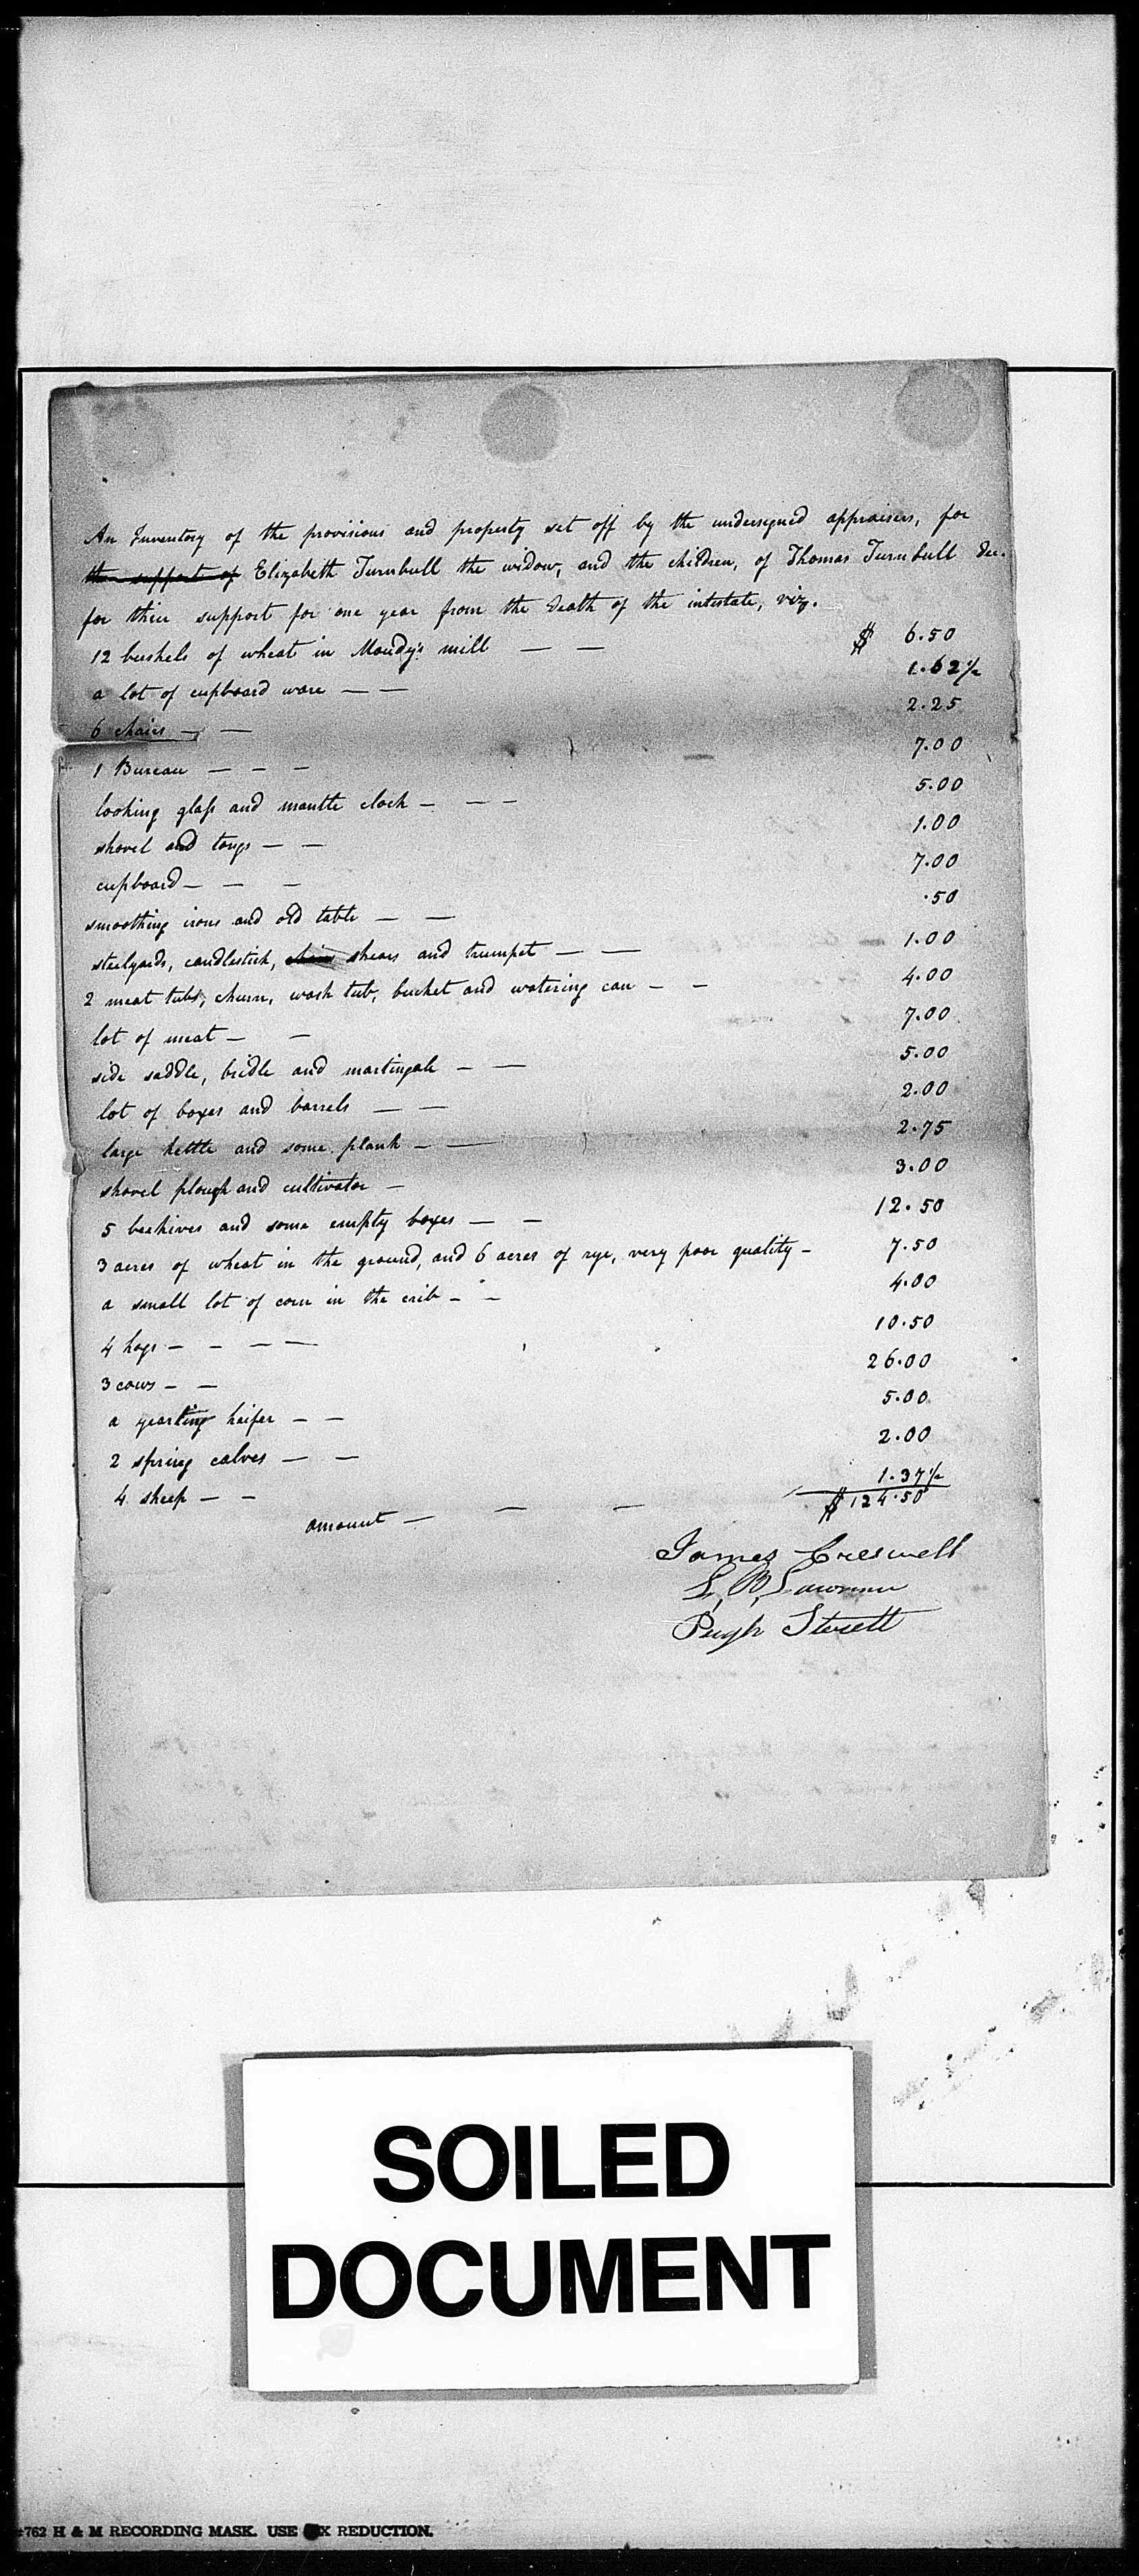 An Inventory of the provisions and property set off by the undersigned appraisers, for
the support of Elizabeth Turnbull the widow, and the children, of Thomas Turnbull dec.
for their support for one year from the death of the intestate, viz.
12 bushels of wheat in Moudy's mill — — $ 6.50
a lot of cupboard ware — — 1.62½
6 chairs — — 2.25
1 Bureau — — — 7.00
looking glass and mantle clock — — — 5.00
shovel and tongs — — 1.00
cupboard — — — 7.00
smoothing irons and old table — — .50
steelyards, candlestick, shears and trumpet — — 1.00
2 meat tubs, churn, wash tub, bucket and watering can — — 4.00
lot of meat — — 7.00
side saddle, bridle and martingale — — 5.00
lot of boxes and barrels — — 2.00
large kettle and some plank — — 2.75
shovel plough and cultivator — 3.00
5 beehives and some empty boxes — — 12.50
3 acres of wheat in the ground, and 6 acres of rye, very poor quality — 7.50
a small lot of corn in the crib — — 4.00
4 hogs — — — — 10.50
3 cows — — 26.00
a yearling heifer — — 5.00
2 spring calves — — 2.00
4 sheep — — 1.37½
amount — — — $124.50
James Creswell
S. B. Lawrence
Pugh Sterett
SOILED
DOCUMENT
762 H & M RECORDING MASK. USE X REDUCTION.